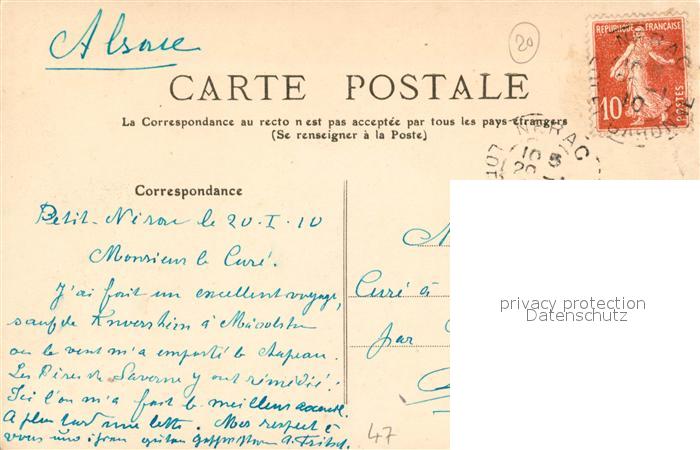 Alsace
20
CARTE POSTALE
La Correspondance au recto n'est pas acceptée par tous les pays étrangers
(Se renseigner à la Poste)
REPUBLIQUE FRANÇAISE
10
POSTES
NERAC
LOT
10
20
Correspondance
Petit-Nérac le 20-I-10
Monsieur le Curé.
J'ai fait un excellent voyage,
sauf de à
où le vent m'a emporté le chapeau.
Les Pères de Saverne y ont remédié!
Ici l'on m'a fait le meilleur accueil.
A plus tard une lettre. Mes respects à
vous
M
Curé à
par
47
privacy protection
Datenschutz